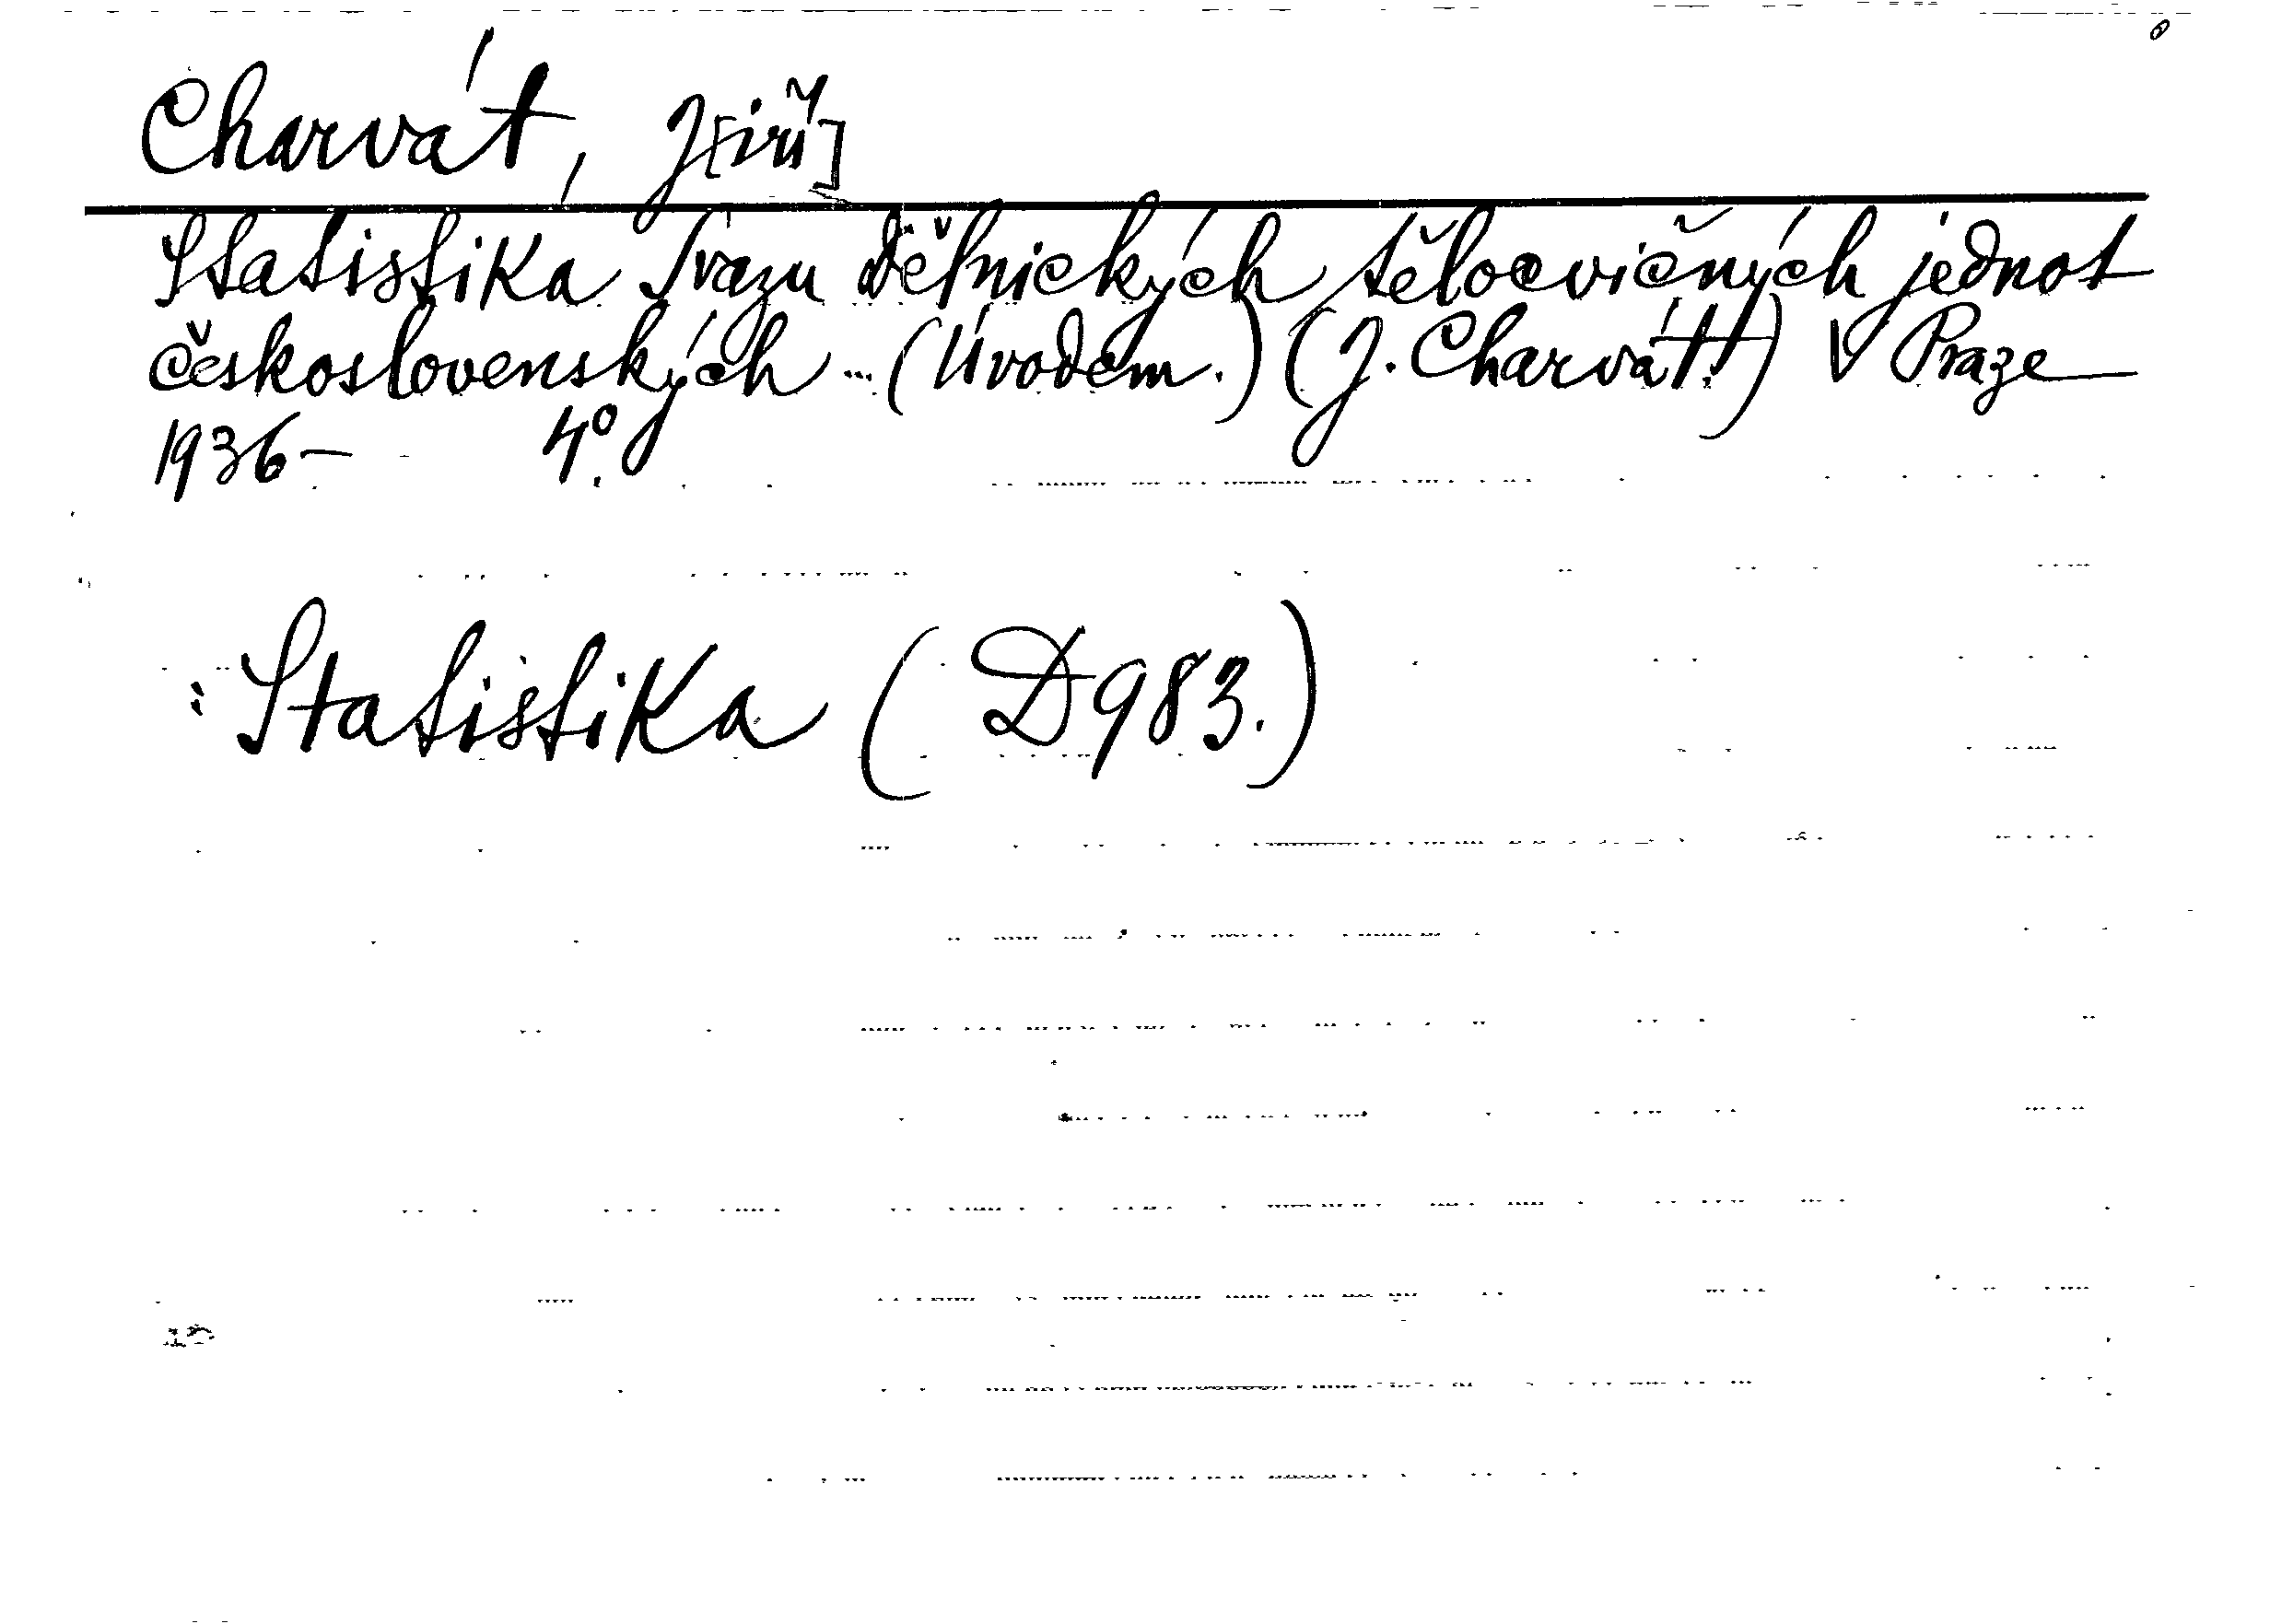 Charvát, J[iří]
Statistika Svazu dělnických tělocvičných jednot
československých ... (Úvodem.) (J. Charvát.) V Praze
1936- 4°.
: Statistika (D 983.)